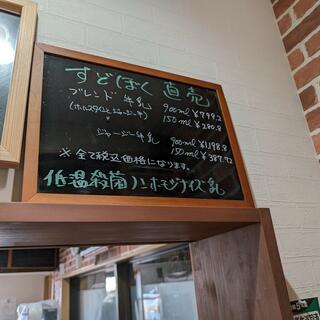 すどぼく 直売
ブレンド牛乳 900ml ¥799.2
(ホルスタインとジャージー牛) 150ml ¥280.8
ジャージー牛乳 900ml ¥1,198.8
150ml ¥387.72
※全て税込価格になります。
低温殺菌ノンホモジナイズ乳